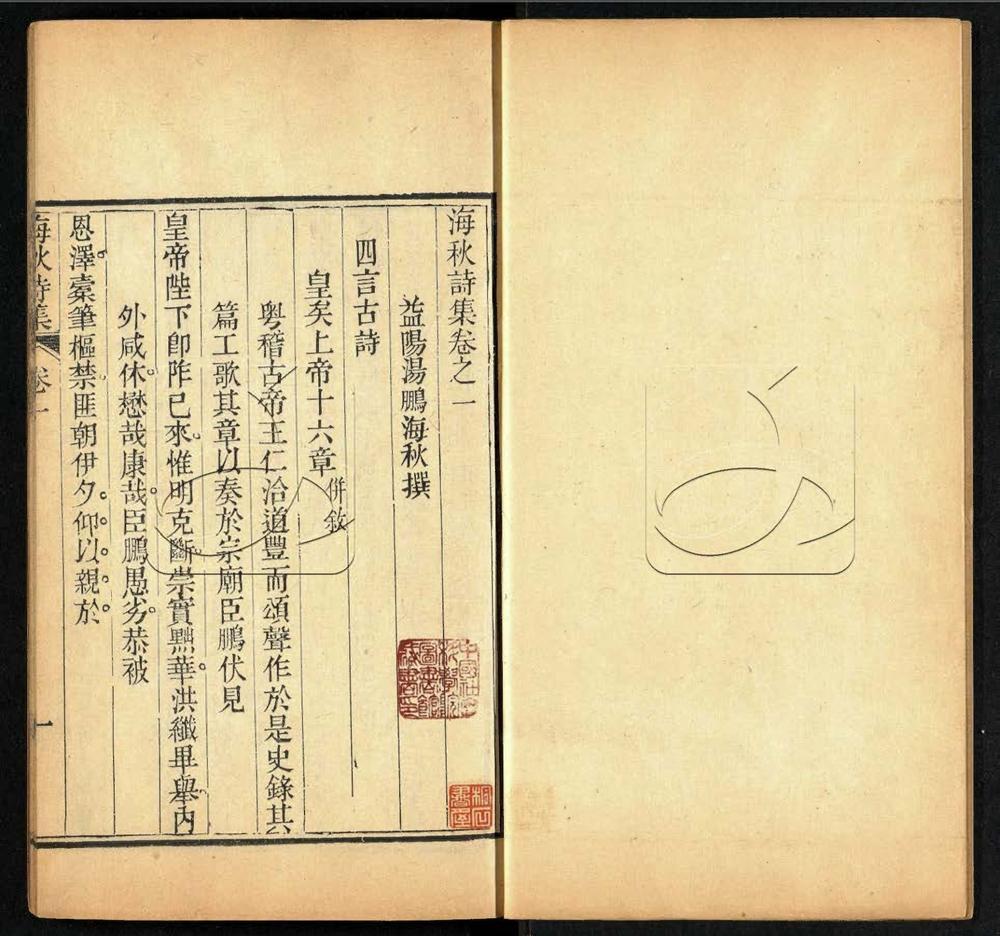 海秋詩集卷之一
益陽湯鵬海秋撰
四言古詩
皇矣上帝十六章併敘
粵稽古帝王仁洽道豐而頌聲作於是史錄其
篇工歌其章以奏於宗廟臣鵬伏見
皇帝陛下卽阼已來惟明克斷崇實黜華洪纖畢舉內
外咸休懋哉康哉臣鵬愚劣恭被
恩澤橐筆樞禁匪朝伊夕仰以親於
海秋詩集 卷一 一